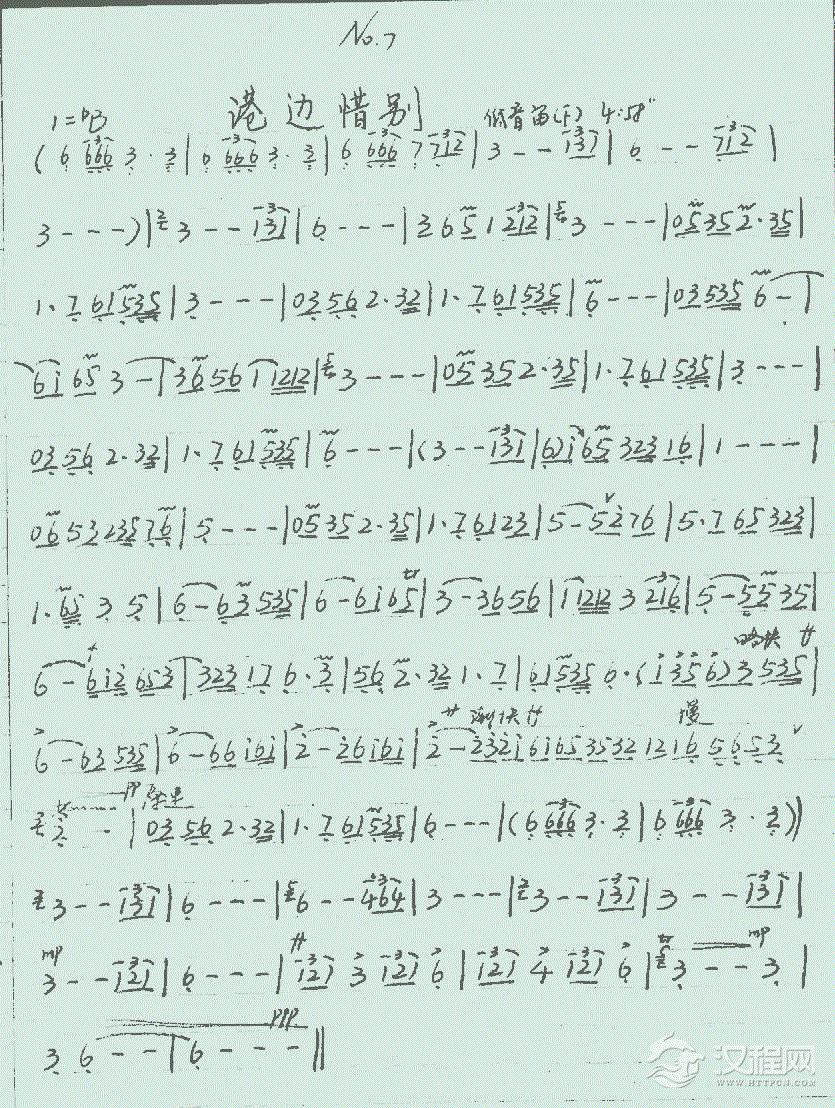 No.7
港边惜别
1=bB 低音笛(F) 4:58"
(6 666 3·3|6 666 3·3|6 666 7 712|3--131|6--712|
3---)|3--131|6---|3 6 5 1 212|3---|05352·35|
1·761535|3---|03562·32|1·761535|6---|035356-|
6i653-|36561 1212|3---|05352·35|1·761535|3---|
03562·32|1·761535|6---|(3--131|6)i6532316|1---|
065323576|5---|05352·35|1·76123|5-5276|5·765323|
1·6535|6-63535|6-6i65|3-3656|1 12123216|5-5535|
6-6i2653|323176·3|562·321·7|615356·(i356)3535|
6-63535|6-66i6i|2-26i6i|2-232i6i65353212165653
慢
pp
2--|03562·32|1·761535|6---|(6 666 3·3|6 666 3·3)|
3--131|6---|6--464|3---|3--131|3--131|
mp mp
3--121|6---|121 3 121 6|121 4 121 6|3--3|
ppp
3 6--|6---||
汉程网
WWW.HTTPCN.COM